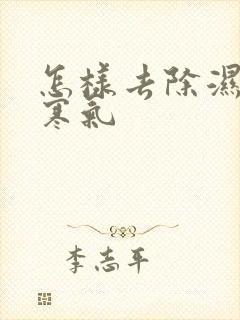 怎样去除濕
寒氣
李志平